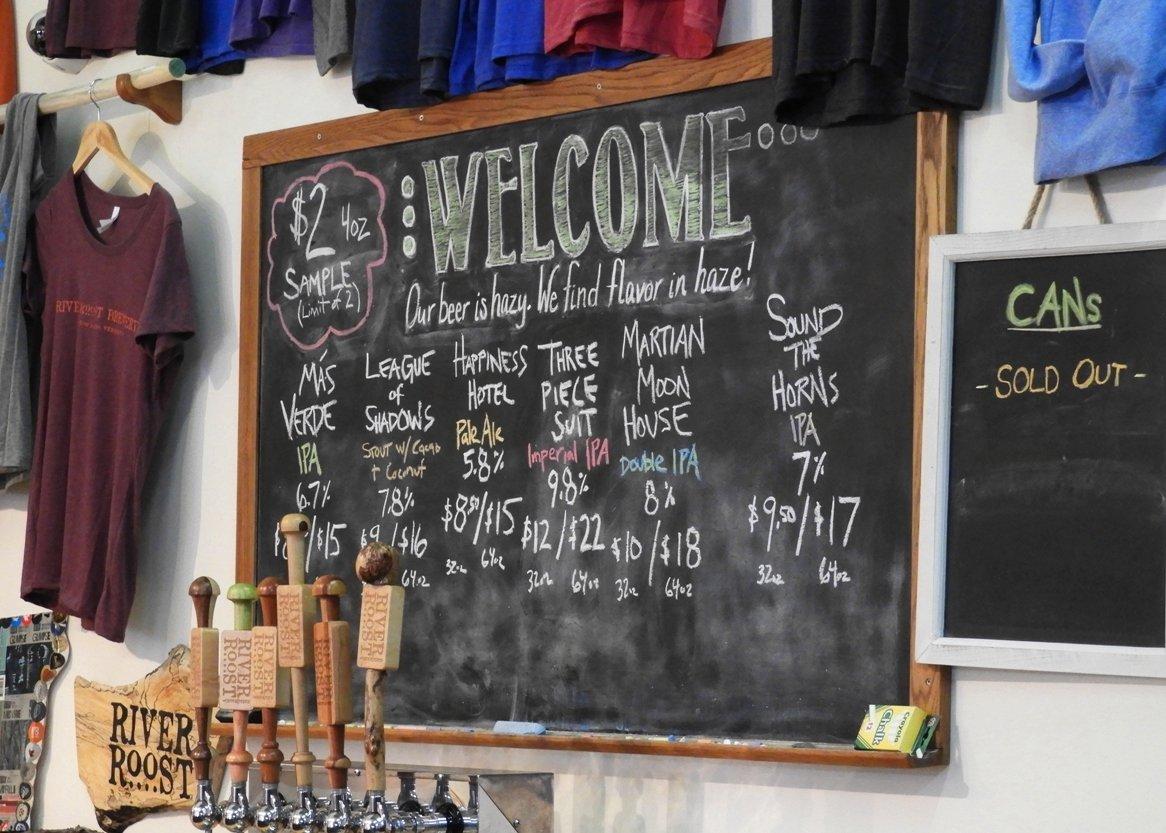 $2 4oz
SAMPLE
(Limit of 2)
WELCOME...
Our beer is hazy. We find flavor in haze!
MÁS
VERDE
IPA
6.7%
/$15
LEAGUE
of
SHADOWS
Stout w/ Cacao
+ Coconut
7.8%
$9 /$16
64oz
HAPPINESS
HOTEL
Pale Ale
5.8%
$8.50/$15
32oz 64oz
THREE
PIECE
SUIT
Imperial IPA
9.8%
$12/$22
32oz 64oz
MARTIAN
MOON
HOUSE
Double IPA
8%
$10/$18
32oz 64oz
SOUND
THE
HORNS
IPA
7%
$9.50/$17
32oz 64oz
CANs
- SOLD OUT -
RIVER
ROOST
RIVER
ROOST
RIVER
ROOST
RIVER
ROOST
RIVER
ROOST
Crayola
Chalk
12